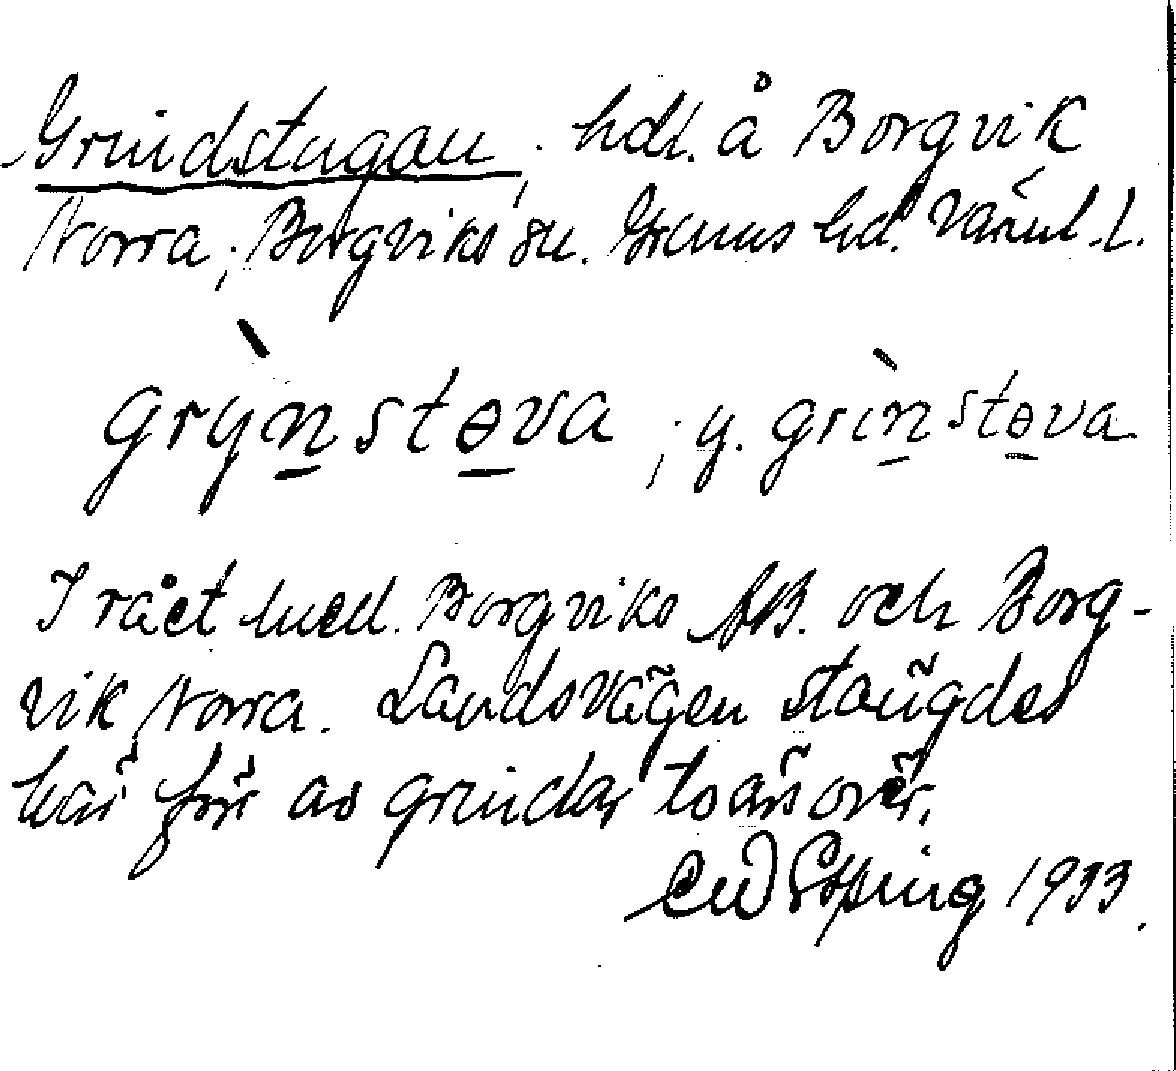 Grindstugan, hdl. å Borgvik
Norra, Borgviks sn. Grums hd. Värml. l.
grỳn̲stɵ̲va ; y. grìn̲stɵ̲va
I rået med Borgviks AB. och Borg-
vik Norra. Landsvägen stängdes
här förr av grindar tvärsöver.
1933.